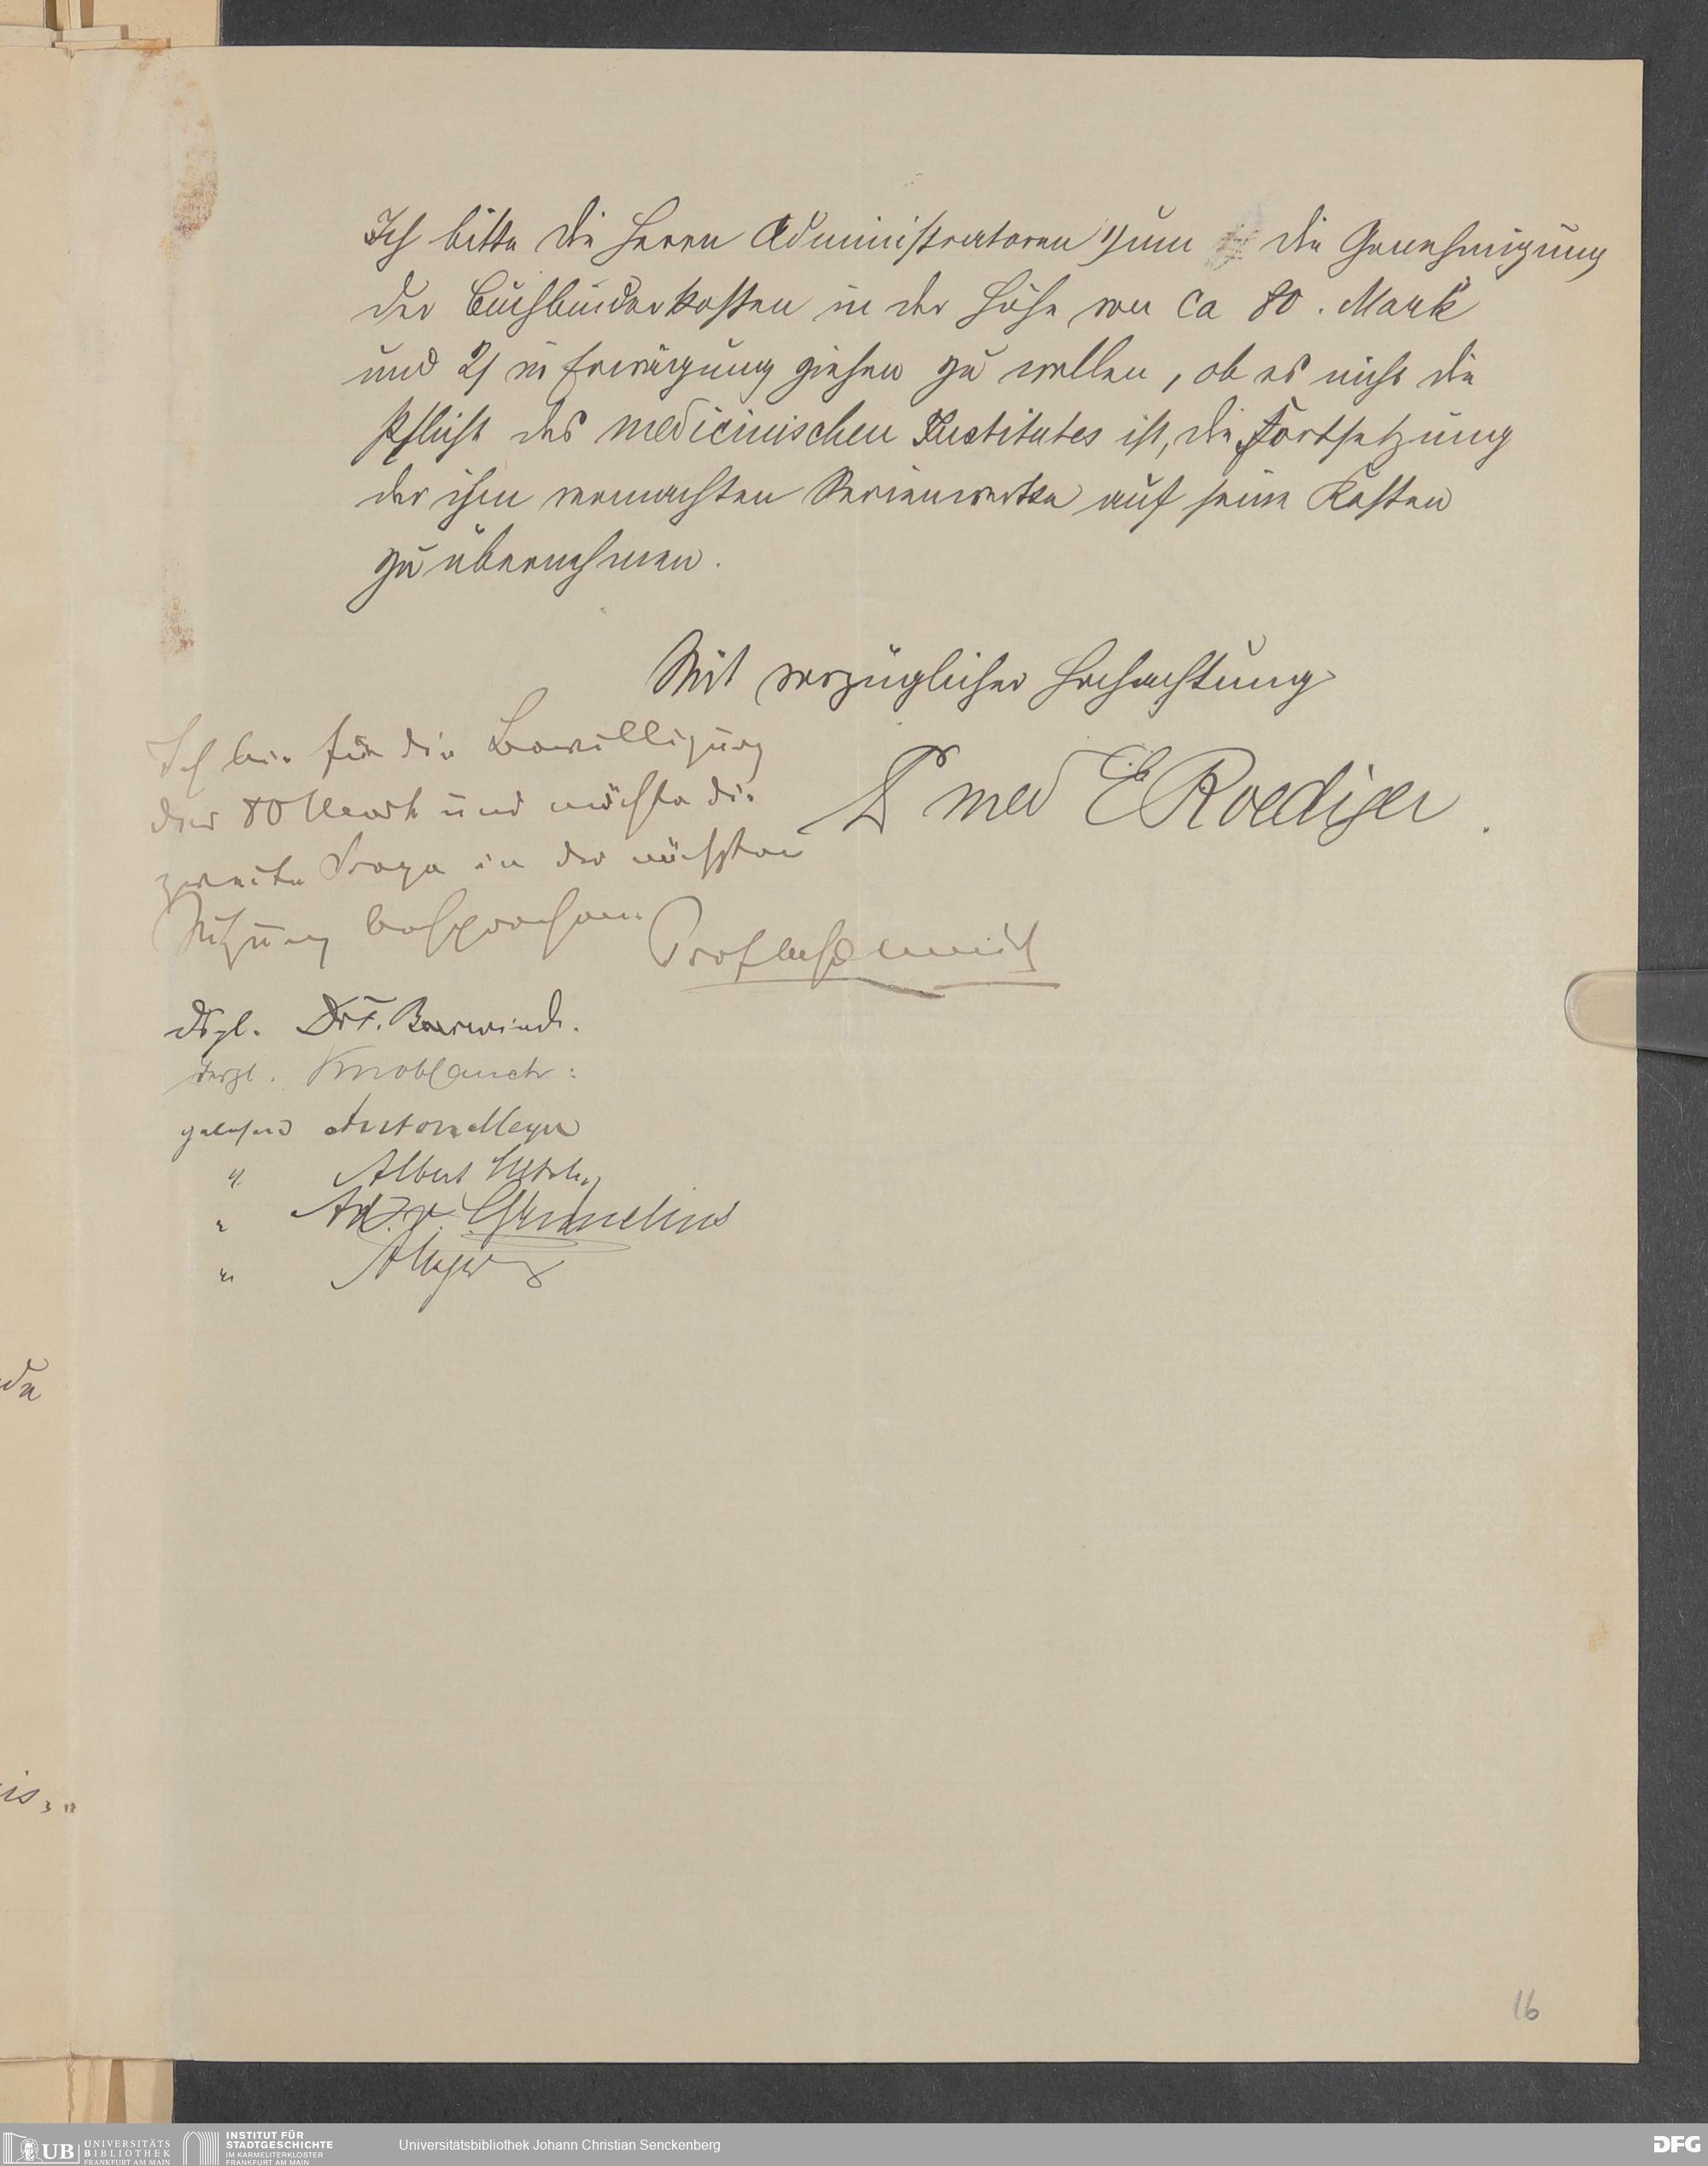 Ich bitte die Herrn Administratoren 1) um die Genehmigung
der Buchbinderkosten in der Höhe von ca 80. Mark
und 2) in Erwägung ziehen zu wollen, ob es nicht die
Pflicht des medicinischen Institutes ist, die Fortsetzung
der ihm vermachten Serienwerke auf seine Kosten
zu übernehmen.
Mit vorzüglicher Hochachtung
Dr med E Roediger.
Ich bin für die Bewilligung
der 80 Mark und möchte die
zweite Frage in der nächsten
Sitzung besprechen.
dsgl. Dr F. Baerwindt.
desgl. Knoblauch:
gelesen Anton Meyer
" Albert
" Ad. v. Grunelius
"
da
is, "
16
UB UNIVERSITÄTS
BIBLIOTHEK
FRANKFURT AM MAIN
INSTITUT FÜR
STADTGESCHICHTE
IM KARMELITERKLOSTER
FRANKFURT AM MAIN
Universitätsbibliothek Johann Christian Senckenberg
DFG